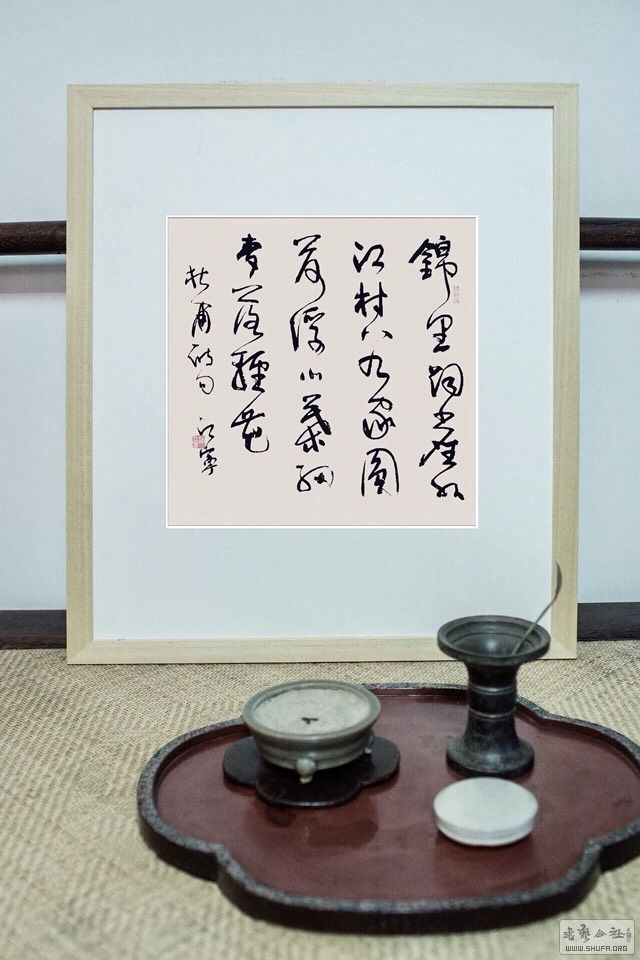 錦里烟塵外
江村八九家圓
荷浮小葉細
麥落輕花
杜甫詩句 江寧
書藝公社
WWW.SHUFA.ORG